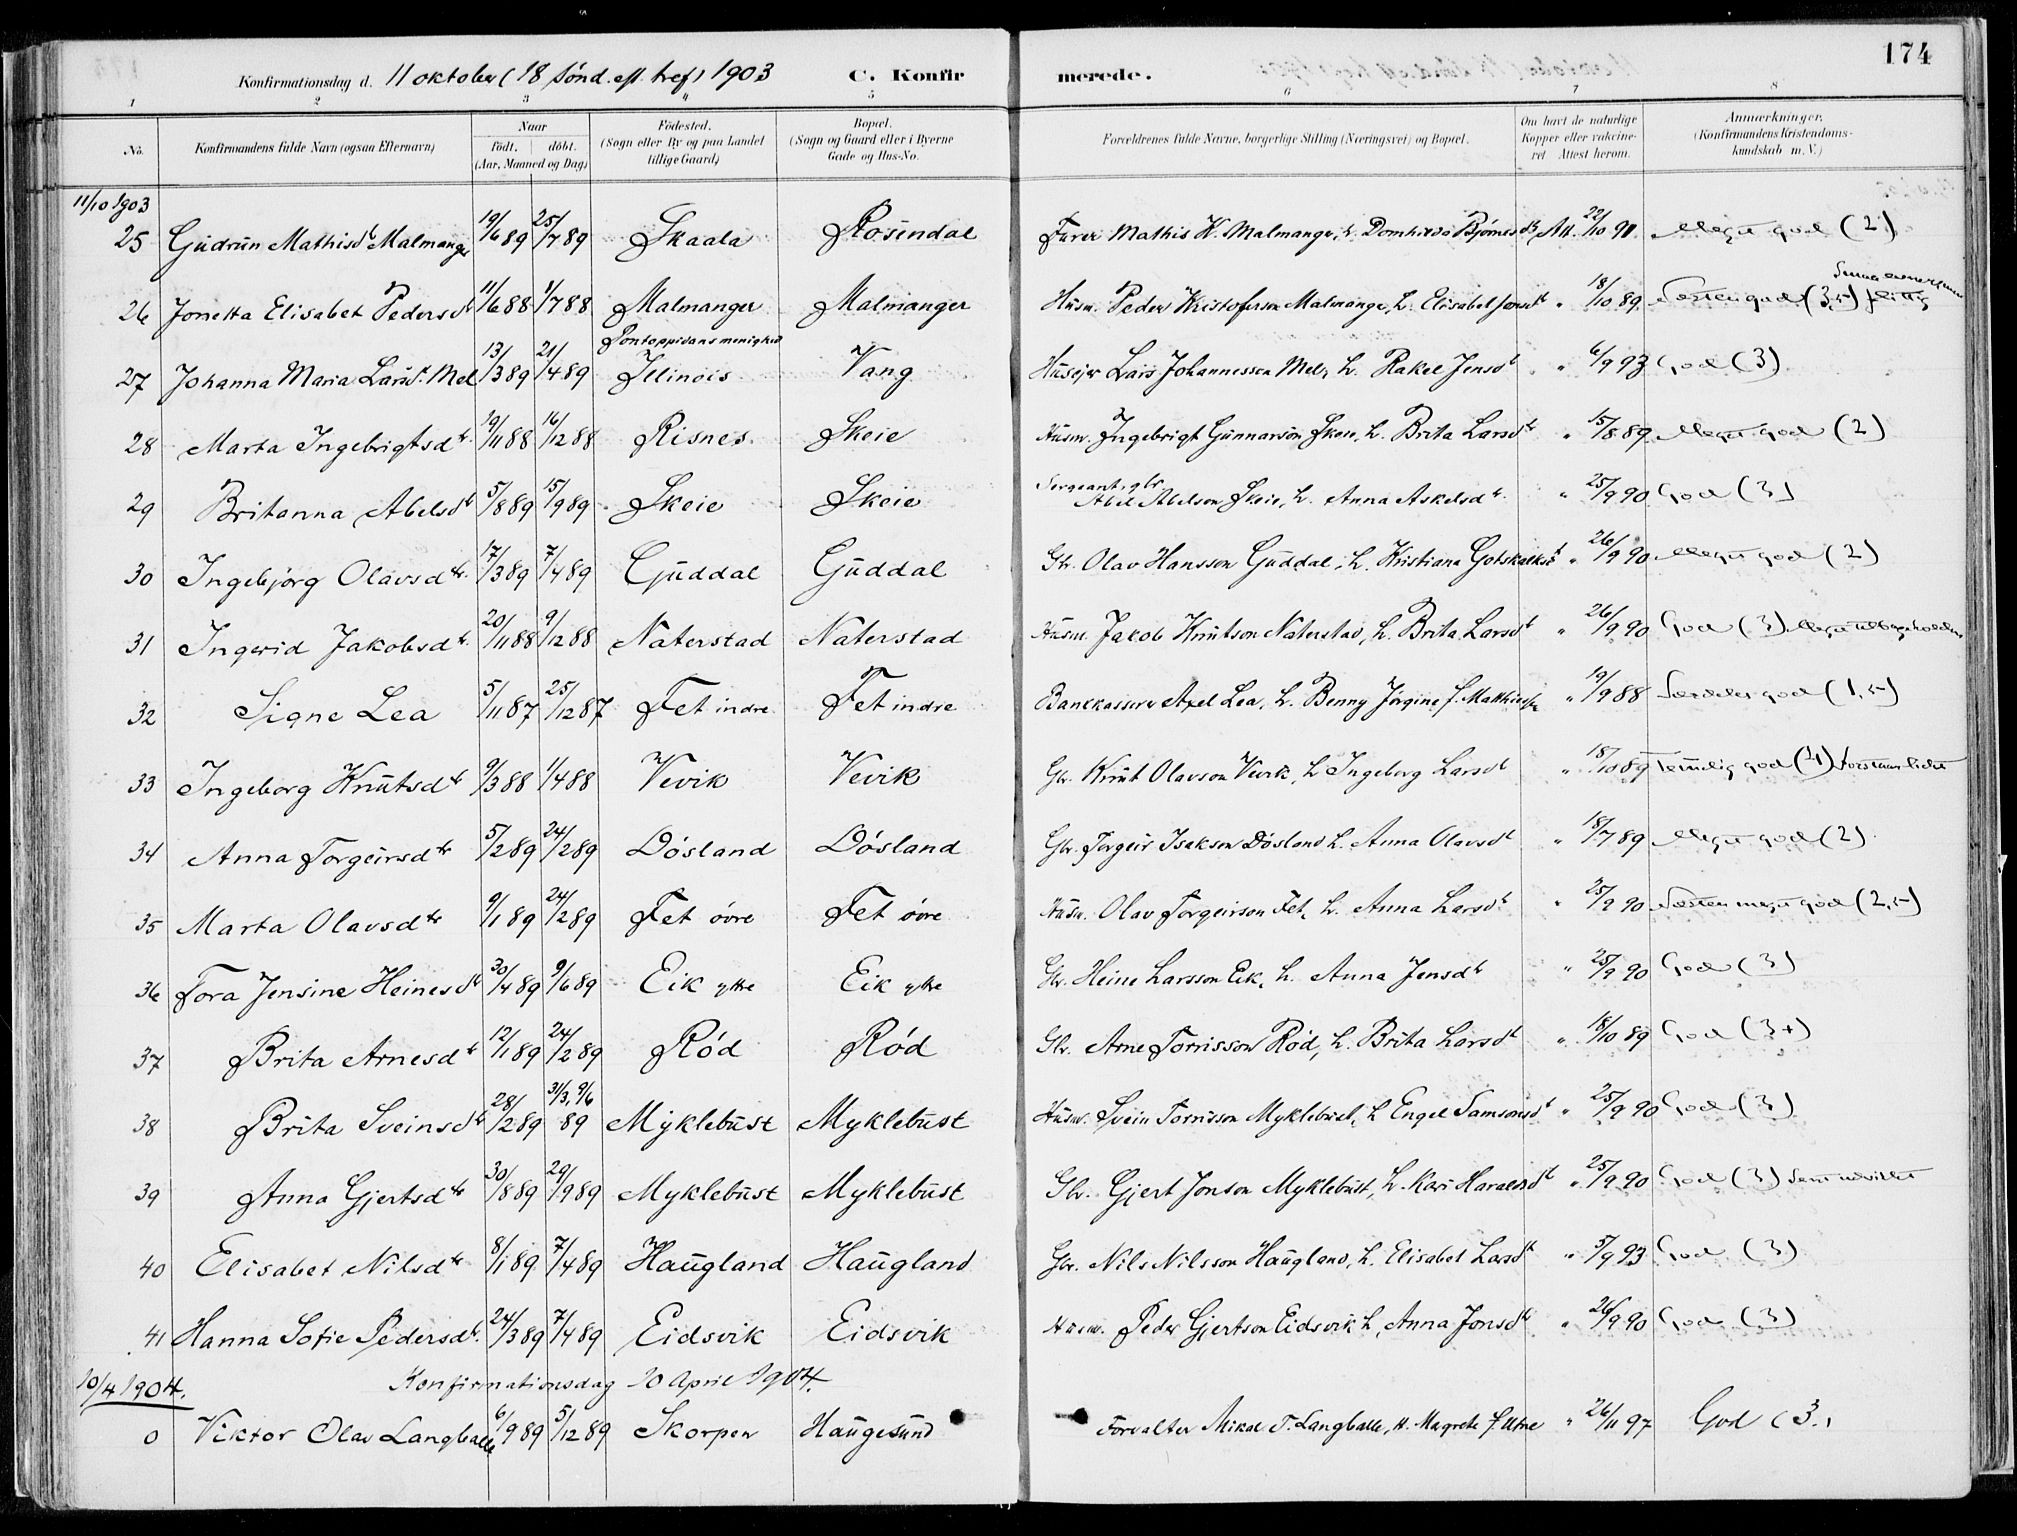 174
Konfirmationsdag d. 11 oktober (18 sønd. eft. tref) 1903 C. Konfirmerede.
1 2 3 4 5 6 7 8
No. Konfirmandens fulde Navn (ogsaa Efternavn) Naar født. døbt. (Aar, Maaned og Dag) Fødested. (Sogn eller By og paa Landet tillige Gaard) Bopæl. (Sogn og Gaard eller i Byerne Gade og Hus-No. Forældrenes fulde Navne, borgerlige Stilling (Næringsvei) og Bopæl. Om havt de naturlige Kopper eller vakcineret Attest herom. Anmærkninger. (Konfirmandens Kristendomskundskab m. V.)
11/10 1903
25 Gudrun Mathisdtr Malmanger 19/6 89 25/7 89 Skaala Rosendal Furer Mathis K. Malmanger, h. Domhilda Bjørnesdtr Att. 22/10 91 Meget god (2)
26 Jonetta Elisabet Pedersdtr 11/6 88 1/7 88 Malmanger Malmanger Husm. Peder Kristoferson Malmange, h. Elisabet Jonsdtr " 18/10 89 Næsten god (3,5) flittig
27 Johanna Maria Larsdtr. Mel 13/3 89 21/4 89 Pontoppidans menighed Illinois Vang Husejer Lars Johannessen Mel, h. Rakel Jensdtr " 6/9 93 God (3)
28 Marta Ingebrigtsdtr. 19/11 88 16/12 88 Risnes Skeie Husm. Ingebrigt Gunnarson Skeie, h. Brita Larsdtr " 15/8 89 Meget god (2)
29 Britanna Abelsdtr 5/8 89 15/9 89 Skeie Skeie Sergeant, gbr Abel Abelson Skeie, h. Anna Askelsdtr. " 25/9 90 God (3)
30 Ingebjørg Olavsdtr. 17/3 89 7/4 89 Guddal Guddal Gbr. Olav Hansson Guddal, h. Kristiana Gotskalksdtr " 26/9 90 Meget god (2)
31 Ingerid Jakobsdtr. 20/11 88 9/12 88 Naterstad Naterstad Husm. Jakob Knutson Naterstad, h. Brita Larsdtr " 26/9 90 God (3) Meget tilbageholden
32 Signe Lea 5/11 87 25/12 87 Fet indre Fet indre Bankkasserer Axel Lea, h. Benny Jørgine f. Matthiesen " 19/9 88 Særdeles god (1,5)
33 Ingeborg Knutsdtr 9/3 88 1/4 88 Vevik Vevik Gbr. Knut Olavson Vevik, h Ingeborg Larsdtr " 18/10 89 Temmelig god (4) Forstaar lidet
34 Anna Torgeirsdtr 5/2 89 24/2 89 Døsland Døsland Gbr. Torgeir Isakson Døsland h. Anna Olavsdtr " 18/7 89 Meget god (2)
35 Marta Olavsdtr 9/1 89 24/2 89 Fet øvre Fet øvre Husm. Olav Torgeirson Fet, h. Anna Larsdtr " 25/9 90 Næsten meget god (2,5)
36 Tora Jensine Heinesdtr 30/4 89 9/6 89 Eik ytre Eik ytre Gbr. Heine Larsson Eik, h. Anna Jensdtr " 25/9 90 God (3)
37 Brita Arnesdtr 12/1 89 24/2 89 Rød Rød Gbr. Arne Torrisson Rød, h. Brita Larsdtr " 18/10 89 God (3+)
38 Brita Sveinsdtr 28/2 89 31/3, 9/6 89 Myklebust Myklebust Husm. Svein Tornisson Myklebust, h Engel Samsonsdtr " 25/9 90 God (3)
39 Anna Gjertsdtr 30/8 89 29/9 89 Myklebust Myklebust Gbr. Gjert Jonson Myklebust, h. Kari Haraldsdtr " 25/9 90 God (3) Sent udviklet
40 Elisabet Nilsdtr 8/1 89 7/4 89 Haugland Haugland Gbr. Nils Nilsson Haugland, h. Elisabet Larsdtr " 5/9 93 God (3)
41 Hanna Sofie Pedersdtr. 24/3 89 7/4 89 Eidsvik Eidsvik Husm. Peder Gjertson Eidsvik h, Anna Jonsdtr " 26/9 90 God (3)
10/4 1904. Konfirmationsdag 10 April 1904.
0 Viktor Olav Langballe 6/9 89 5/12 89 Skorpen Haugesund Forvalter Mikal T. Langballe, H. Magrete f. Utne " 26/11 97 God (3.)